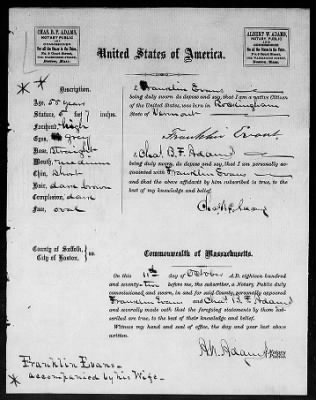 CHAS. B. F. ADAMS,
NOTARY PUBLIC
COMMISSIONER
For all the States in the Union,
No. 5 Court Street,
Boston, Mass.
ALBERT W. ADAMS,
NOTARY PUBLIC
COMMISSIONER
For all the States in the Union,
No. 5 Court Street,
Boston, Mass.
United States of America.
Description.
Age, 55 years
Stature, 5 feet 7 inches
Forehead, high
Eyes, Grey
Nose, Straight
Mouth, medium
Chin, Short
Hair, dark brown
Complexion, dark
Face, oval
I Franklin Evans
being duly sworn do depose and say, that I am a native Citizen
of the United States, was born in Rockingham
State of Vermont
Franklin Evans.
I Chas. B. F. Adams
being duly sworn, do depose and say, that I am personally ac-
quainted with Franklin Evans
and that the above affidavit by him subscribed is true, to the
best of my knowledge and belief.
County of Suffolk,
City of Boston. } ss.
Commonwealth of Massachusetts.
On this 11th day of October A.D. eighteen hundred
and seventy-two before me, the subscriber, a Notary Public duly
commissioned and sworn, in and for said County, personally appeared
Franklin Evans and Chas. B. F. Adams
and severally made oath that the foregoing statements by them sub-
scribed are true, to the best of their knowledge and belief.
Witness my hand and seal of office, the day and year last above
written.
A. W. Adams Notary
Public.
Franklin Evans.
accompanied by his Wife.